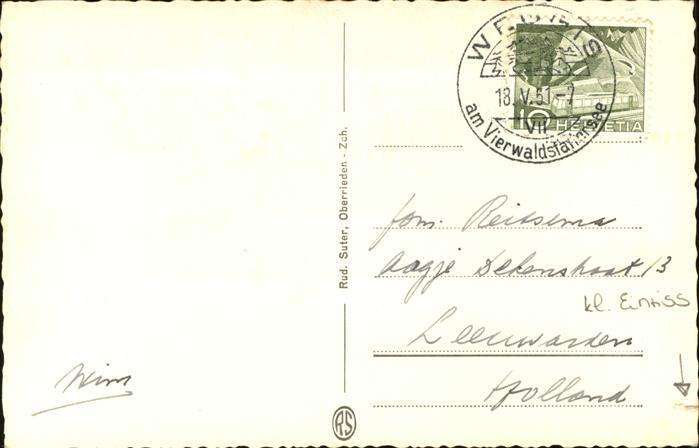 WEGGIS
18.V.51-7
VII
am Vierwaldstättersee
10 HELVETIA
Rud. Suter, Oberrieden - Zch.
Fam. Reitsema
Aagje Dekenstraat 13
kl. Einriss
Leeuwarden
Holland
Wim
RS